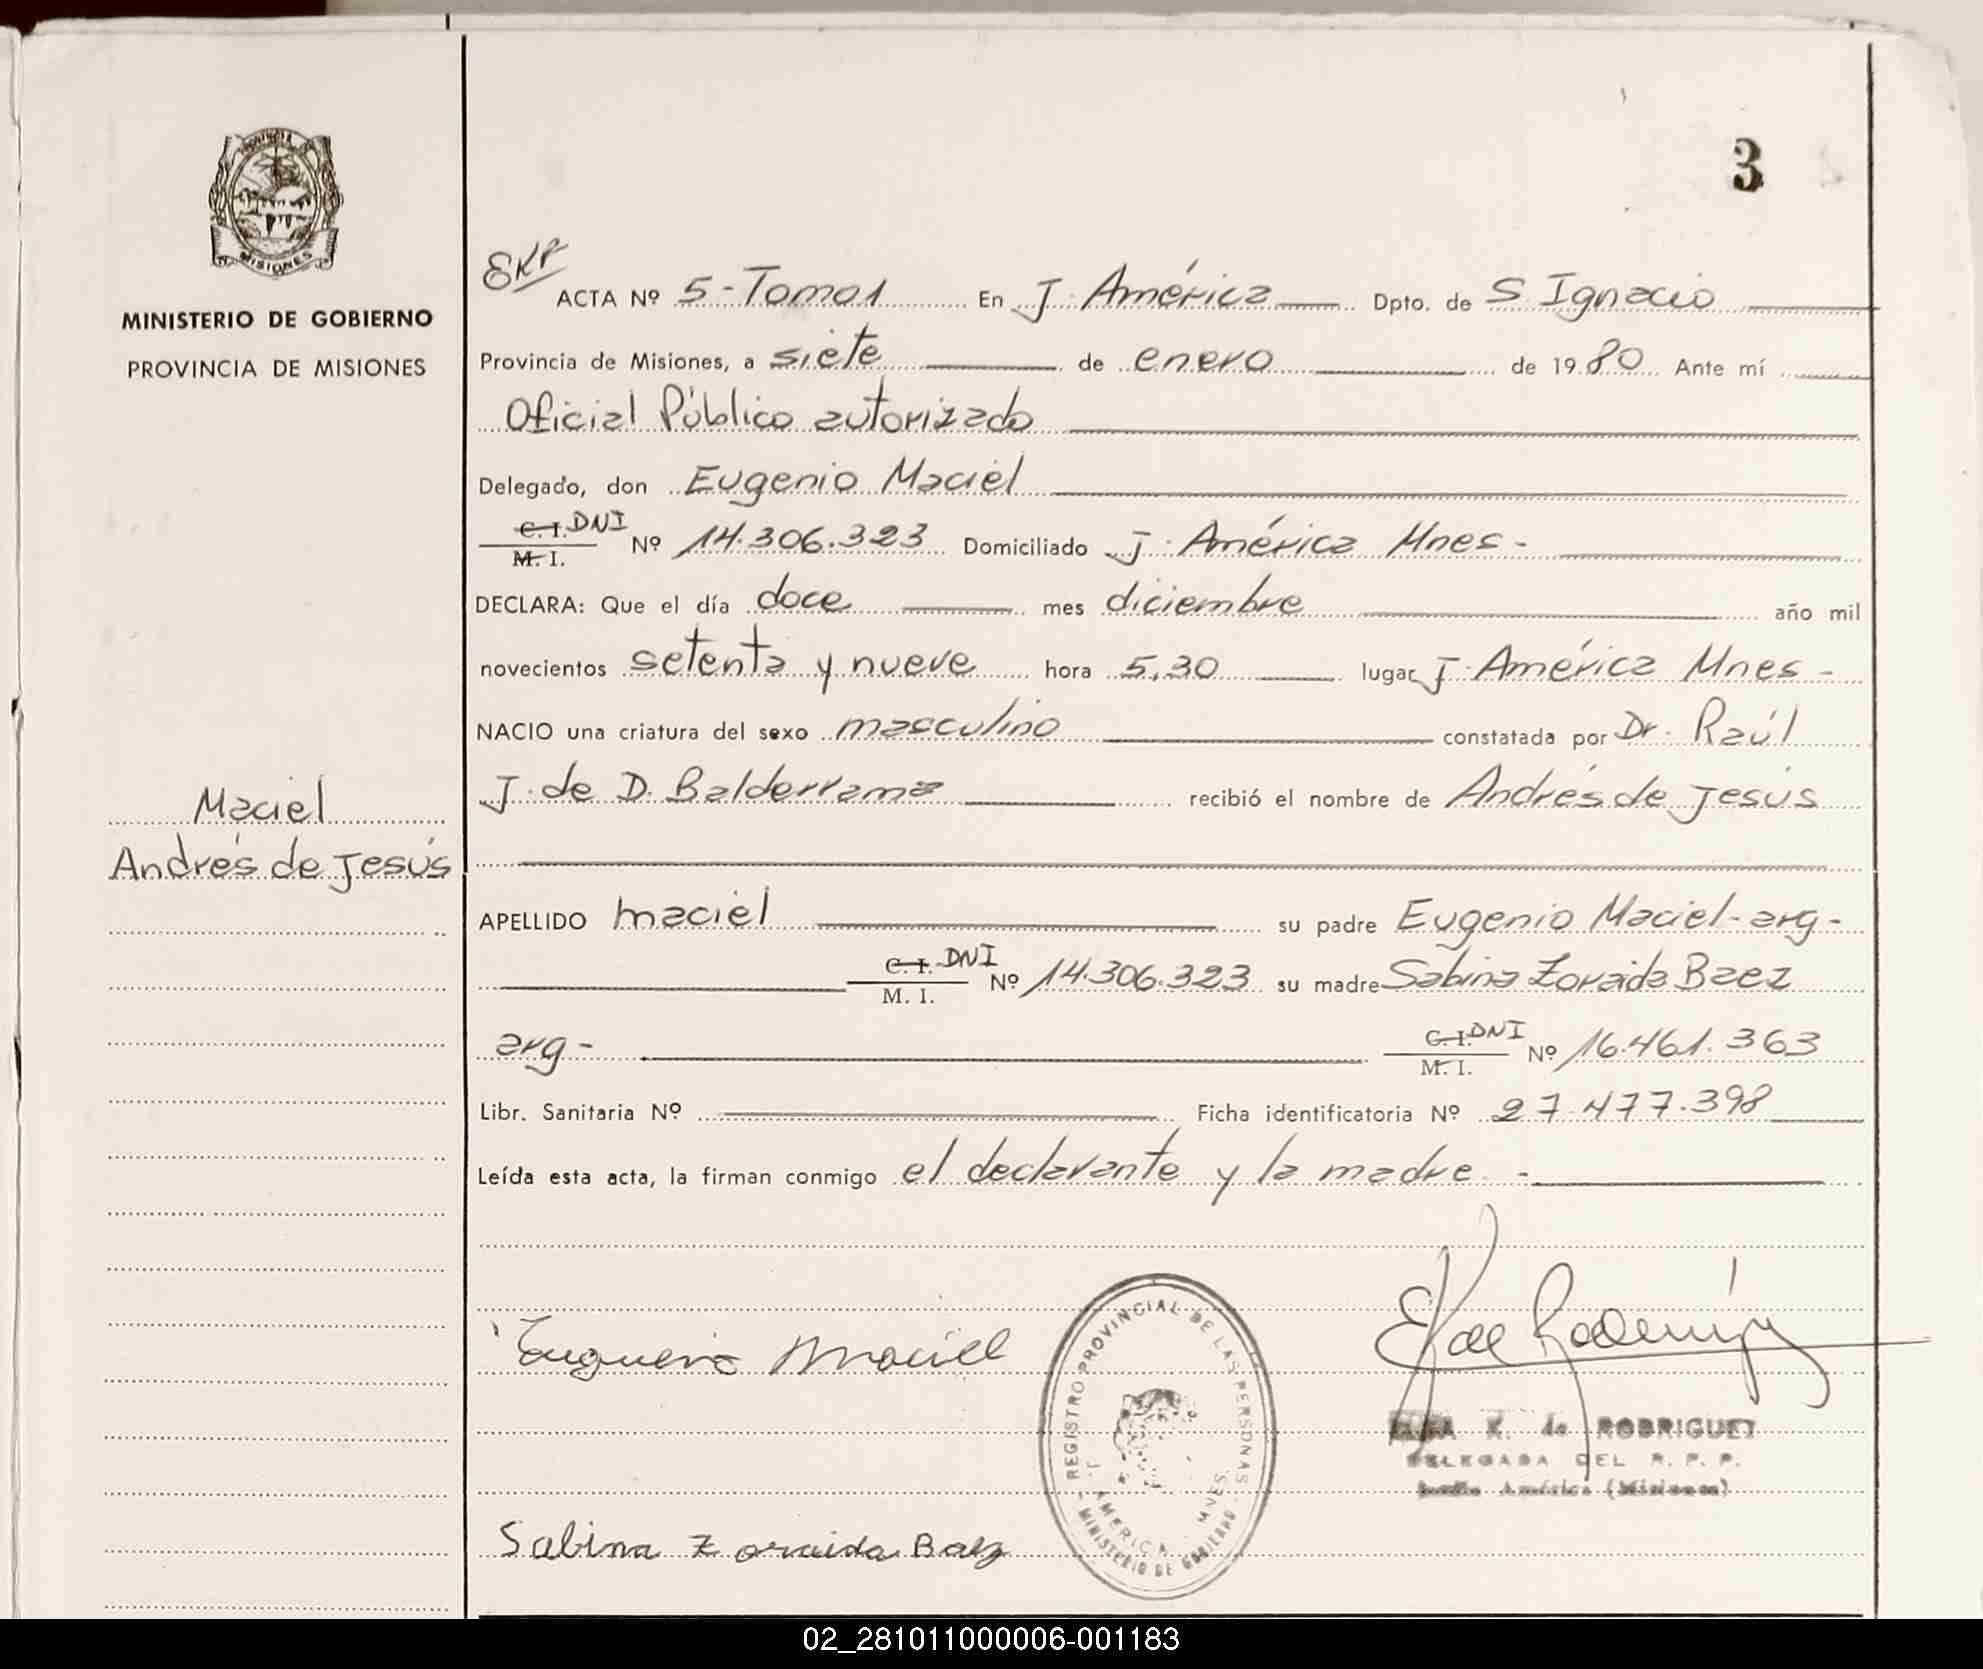 3
PROVINCIA
MISIONES
MINISTERIO DE GOBIERNO
PROVINCIA DE MISIONES
ACTA Nº 5-Tomo1 En J. América Dpto. de S. Ignacio
Provincia de Misiones, a siete de enero de 1980 Ante mí
Oficial Público autorizado
Delegado, don Eugenio Maciel
C. I. DNI
M. I. Nº 14.306.323 Domiciliado J. América Mnes-
DECLARA: Que el día doce mes diciembre año mil
novecientos setenta y nueve hora 5,30 lugar J. América Mnes-
NACIO una criatura del sexo masculino constatada por Dr. Raúl
J. de D. Balderrama recibió el nombre de Andrés de Jesús
Maciel
Andrés de Jesús
APELLIDO Maciel su padre Eugenio Maciel-arg-
C. I. DNI
M. I. Nº 14.306.323 su madre Sabina Zoraida Baez
arg- C. I. DNI
M. I. Nº 16.461.363
Libr. Sanitaria Nº Ficha identificatoria Nº 27.477.398
Leída esta acta, la firman conmigo el declarante y la madre.-
Eugenio Maciel
REGISTRO PROVINCIAL DE LAS PERSONAS
J. AMERICA MNES.
MINISTERIO DE GOBIERNO
K. de RODRIGUEZ
DELEGADA DEL R. P. P.
América (Misiones)
Sabina Zoraida Baez
02_281011000006-001183